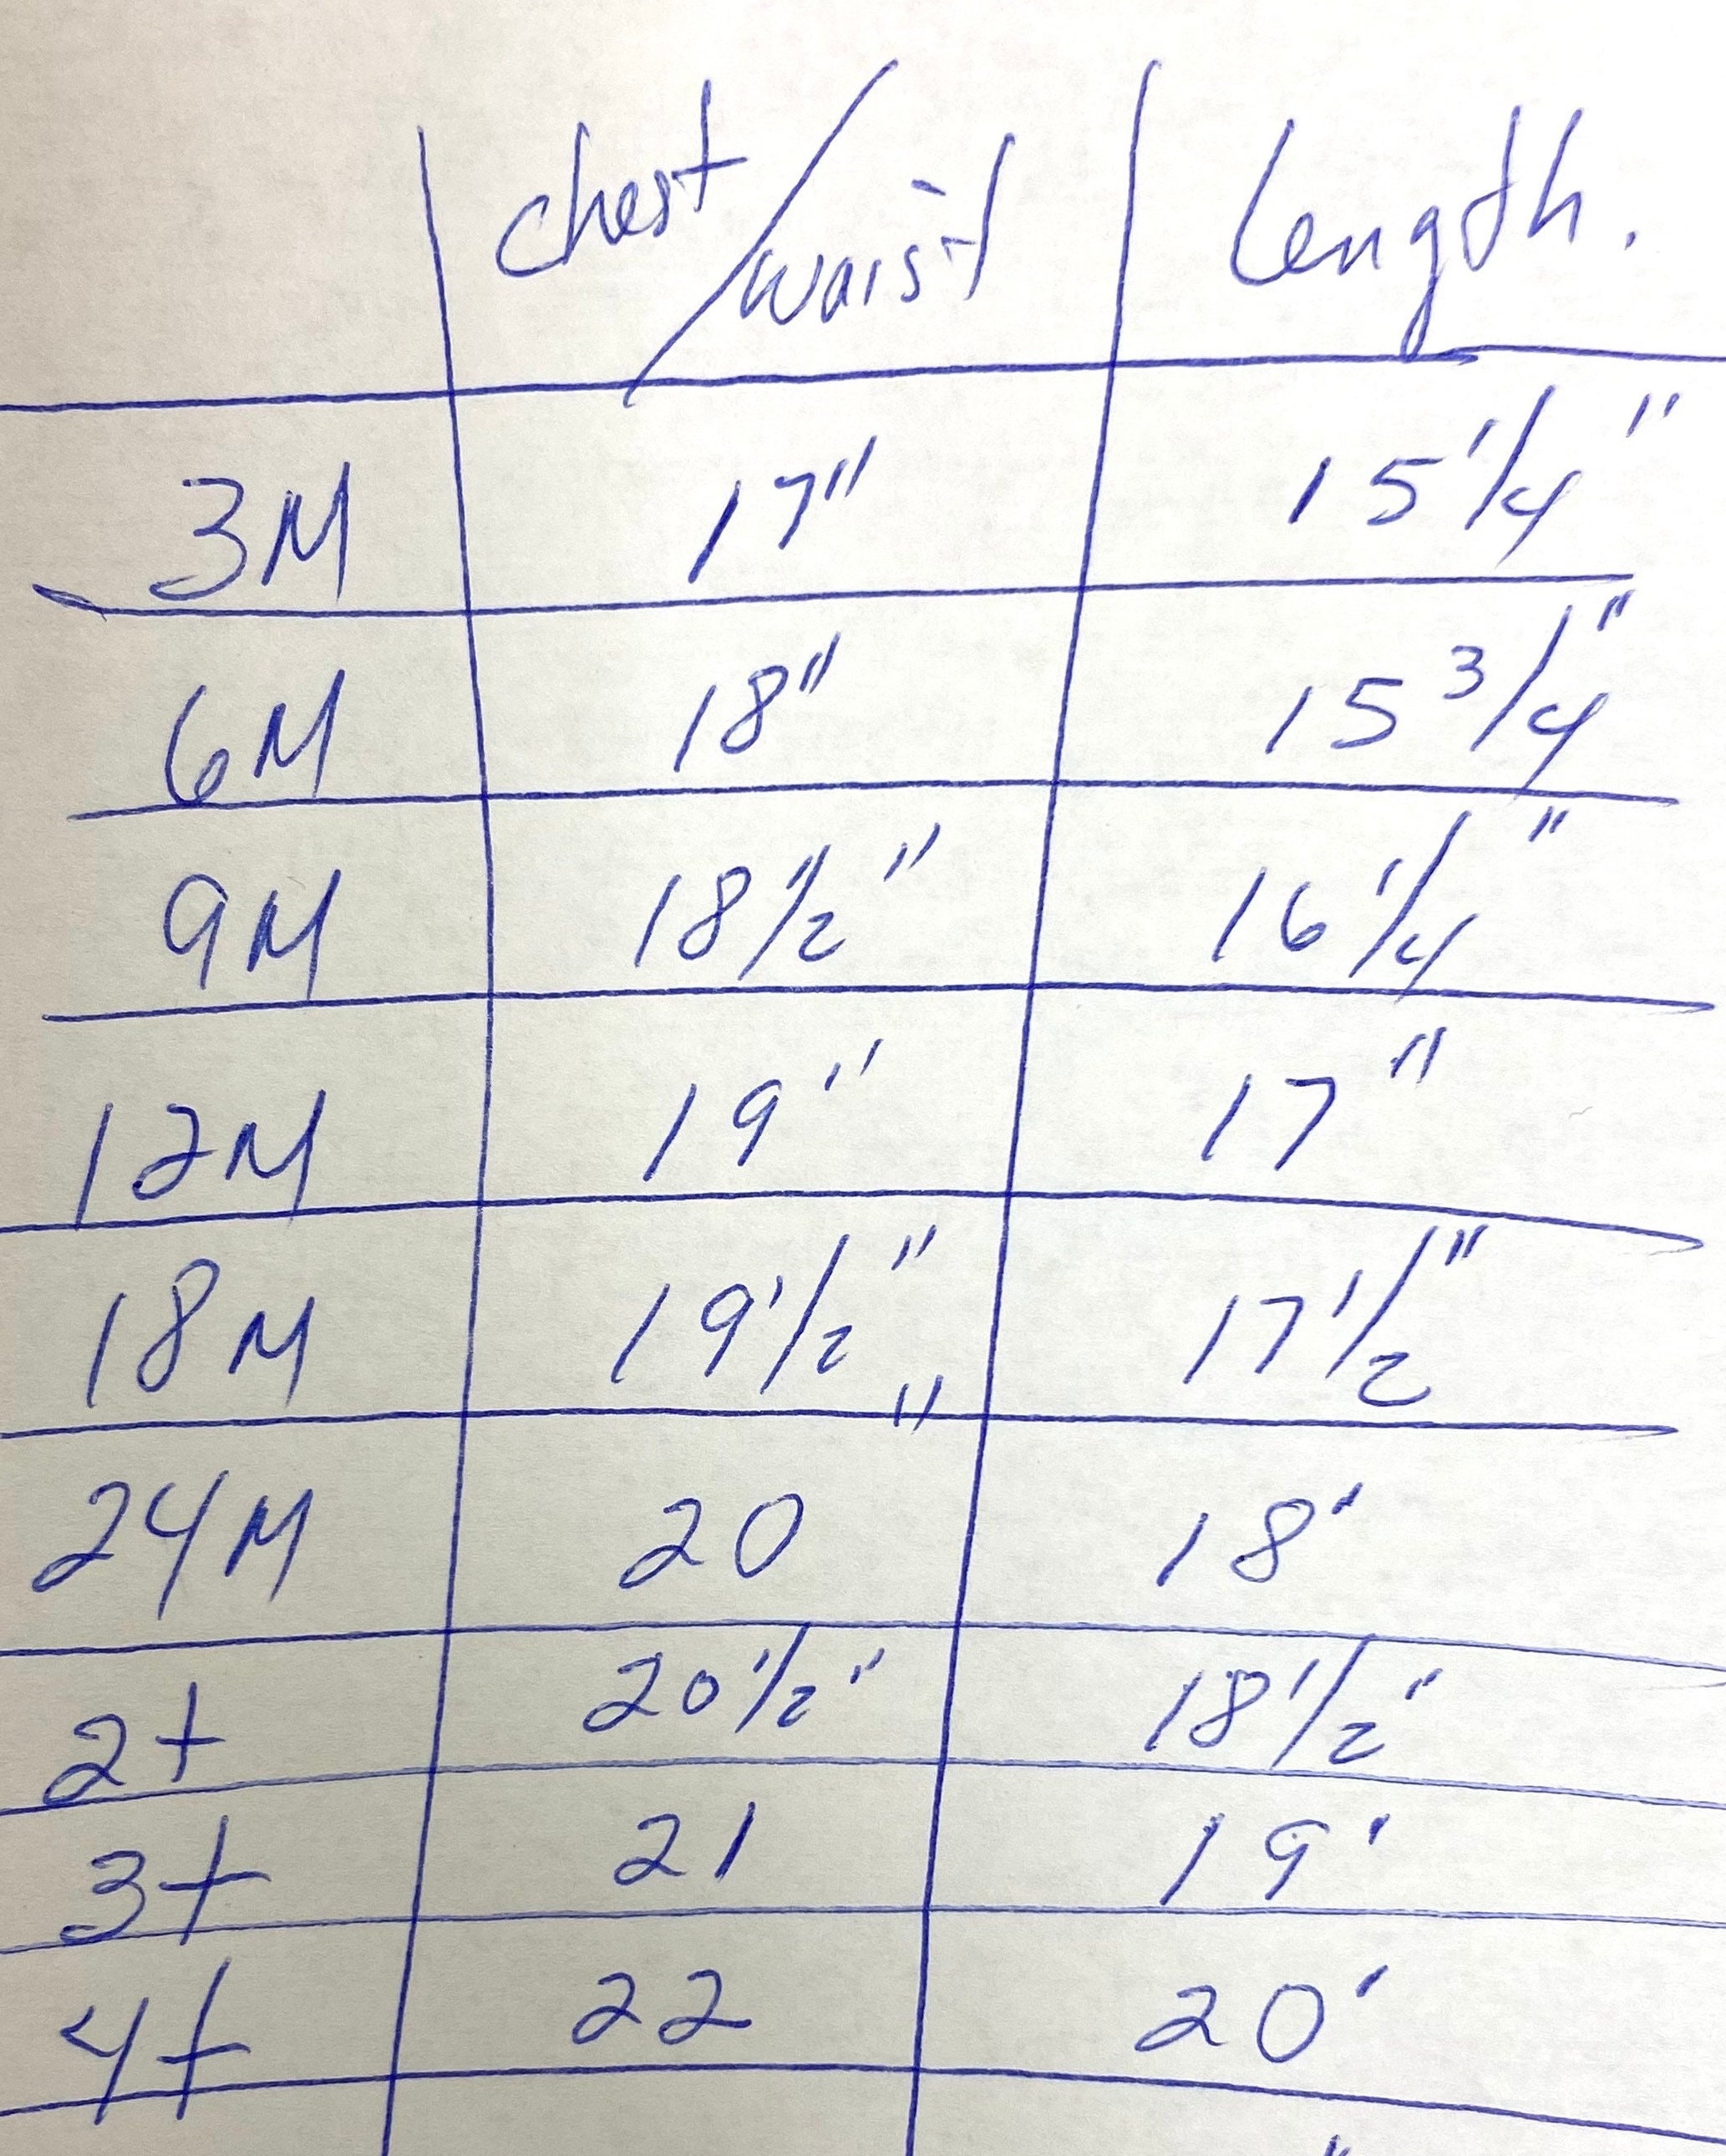 chest/waist length.
3M 17" 15 1/4"
6M 18" 15 3/4"
9M 18 1/2" 16 1/4"
12M 19" 17"
18M 19 1/2" 17 1/2"
24M 20" 18'
2+ 20 1/2" 18 1/2"
3+ 21 19'
4+ 22 20'
"